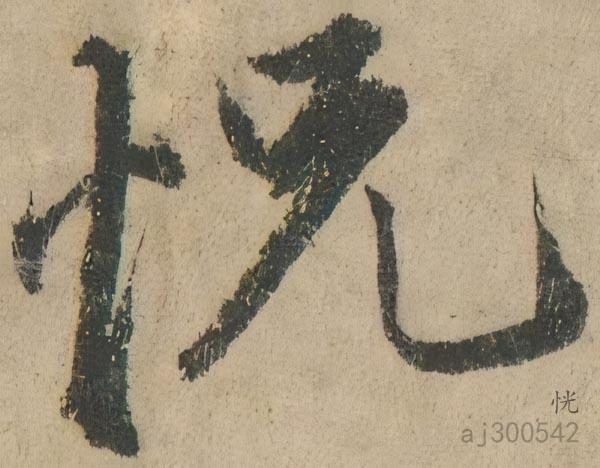 怳
恍
aj300542